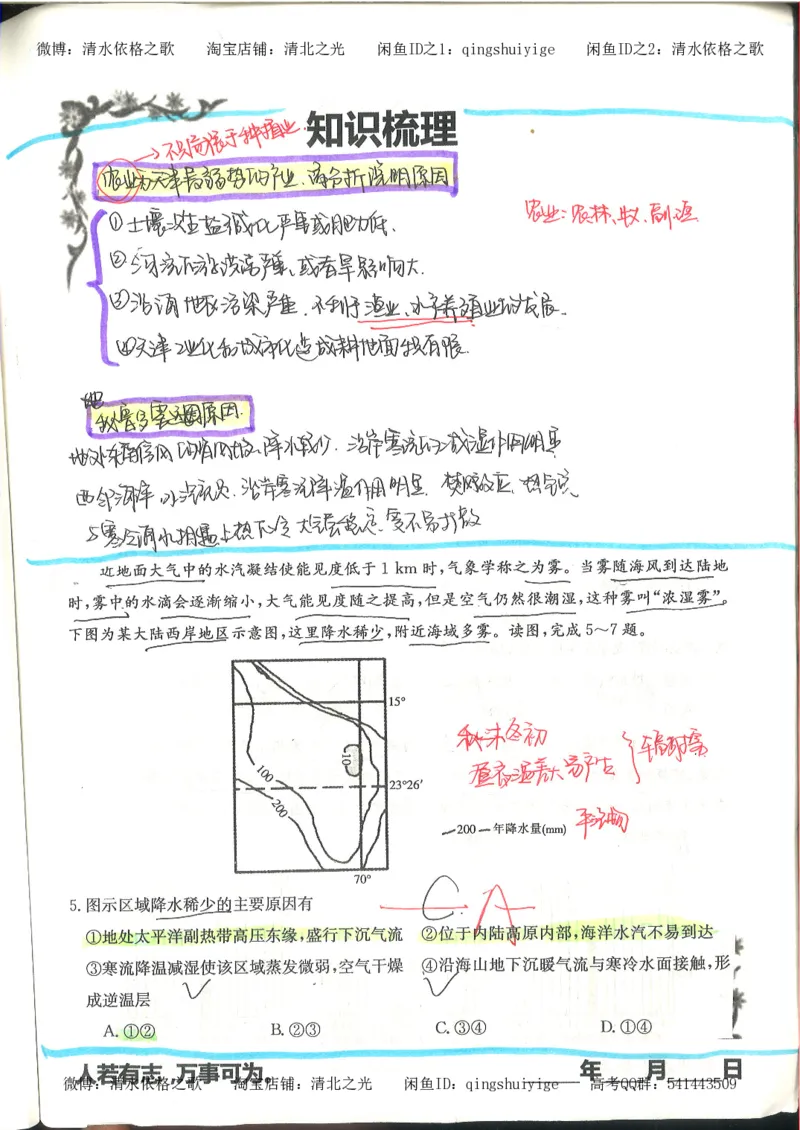 微博：清水依格之歌　　淘宝店铺：清北之光　　闲鱼ID之1：qingshuiyige　　闲鱼ID之2：清水依格之歌
知识梳理
→不局限于种植业
农业为天津最弱势的产业，简分析说明原因
农业：农林、牧、副、渔
①土壤次生盐碱化严重或肥力低、
②河流下游洪涝严重、或者旱影响大.
③沿海地区污染严重，不利于渔业、水产养殖业的发展。
④天津工业化和城市化造成耕地面积有限.
秘鲁多雾原因
地处东南信风的背风坡，降水较少，沿岸寒流的减湿作用明显
西邻海洋，水汽充足，沿岸寒流降温作用明显，焚风效应，
与寒冷海水相遇上热下冷 大气层稳定，雾不易扩散
近地面大气中的水汽凝结使能见度低于 1 km 时，气象学称之为雾。当雾随海风到达陆地
时，雾中的水滴会逐渐缩小，大气能见度随之提高，但是空气仍然很潮湿，这种雾叫“浓湿雾”。
下图为某大陆西岸地区示意图，这里降水稀少，附近海域多雾。读图，完成 5～7 题。
15°
10
100
23°26′
200
70°
—200—年降水量(mm)
秋末冬初
昼夜温差大易产生
辐射雾
5. 图示区域降水稀少的主要原因有
C
A
①地处太平洋副热带高压东缘，盛行下沉气流　②位于内陆高原内部，海洋水汽不易到达
③寒流降温减湿使该区域蒸发微弱，空气干燥　④沿海山地下沉暖气流与寒冷水面接触，形
成逆温层
A. ①②　　B. ②③　　C. ③④　　D. ①④
人若有志，万事可为。　　年　月　日
微博：清水依格之歌　　淘宝店铺：清北之光　　闲鱼ID：qingshuiyige　　高考QQ群：541443509